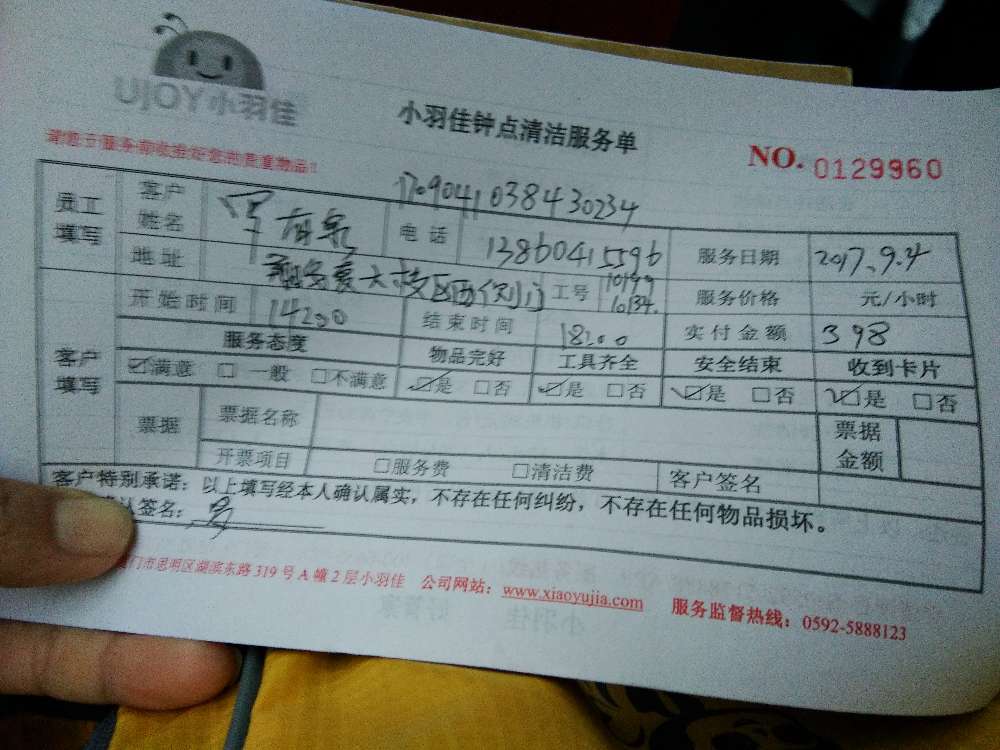 UJOY小羽佳
小羽佳钟点清洁服务单
NO. 0129960
请您于服务前收拾好您的贵重物品!
170904103843023​4
员工填写 客户姓名 电话 13860415596 服务日期 2017.9.4
地址 大 校区西侧门 工号 10199 10134. 服务价格 元/小时
开始时间 14:00 结束时间 18:00 实付金额 398
客户填写 服务态度 物品完好 工具齐全 安全结束 收到卡片
☑满意 □一般 □不满意 ☑是 □否 ☑是 □否 ☑是 □否 ☑是 □否
票据 票据名称 票据金额
开票项目 □服务费 □清洁费 客户签名
客户特别承诺：以上填写经本人确认属实，不存在任何纠纷，不存在任何物品损坏。
认签名：
门市思明区湖滨东路319号A幢2层小羽佳 公司网站：www.xiaoyujia.com 服务监督热线：0592-5888123